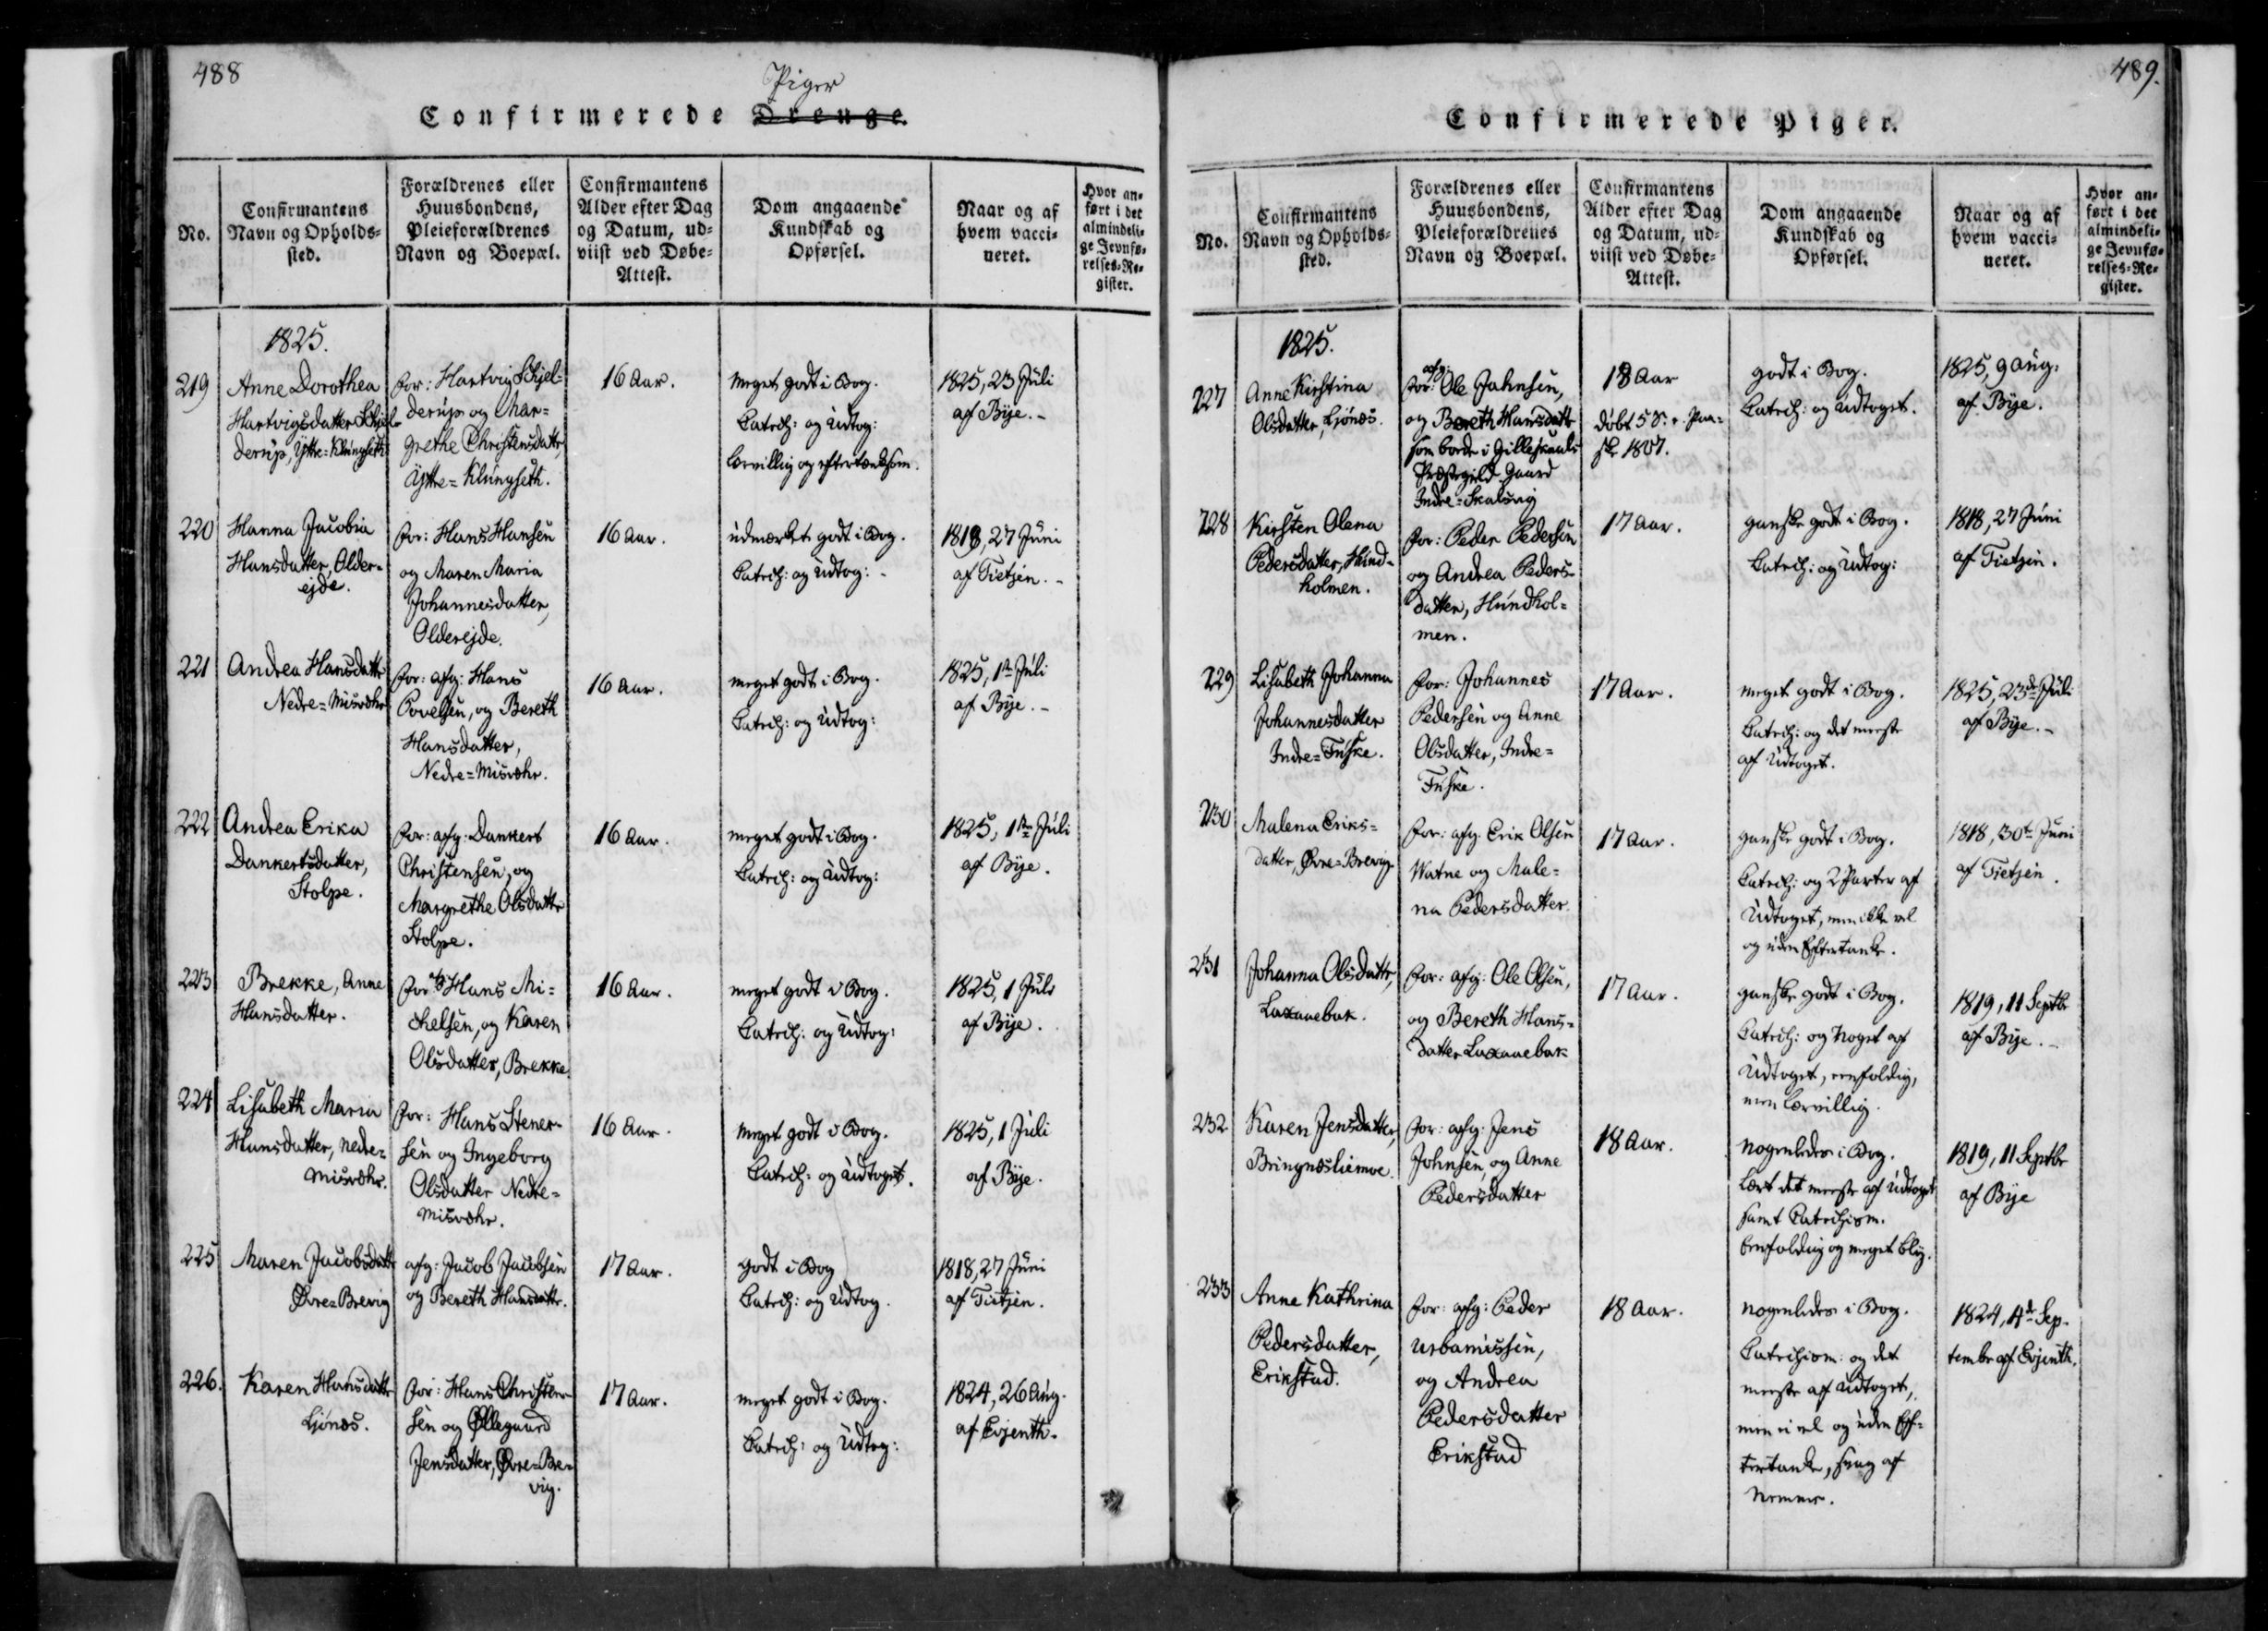 488
Piger
Confirmerede Drenge.
No.
Confirmantens
Navn og Opholds-
sted.
Forældrenes eller
Huusbondens,
Pleieforældrenes
Navn og Boepæl.
Confirmantens
Alder efter Dag
og Datum, ud-
viist ved Døbe-
Attest.
Dom angaaende
Kundskab og
Opførsel.
Naar og af
hvem vacci-
neret.
Hvor an-
ført i det
almindeli-
ge Jevnfø-
relses-Re-
gister.
1825.
219
Anne Dorothea
Hartvigsdatter Schjel-
derup, Yttre-Klungseth
For: Hartvig Schjel-
derup og Mar-
grethe Christensdattr,
Yttre-Klungseth.
16 Aar.
meget godt i Bog.
Catech: og Udtog:
lærvillig og eftertænksom.
1825, 23 Juli
af Bye.-
220
Hanna Jacobia
Hansdatter, Older-
ejde.
For: Hans Hansen
og Maren Maria
Johannesdatter,
Olderejde.
16 Aar.
udmærket godt i Bog.
Catech: og Udtog:-
1818, 27 Juni
af Tietjen.-
221
Andrea Hansdattr
Nedre-Misvæhr
For: afg: Hans
Povelsen, og Bereth
Hansdatter,
Nedre-Misvæhr.
16 Aar.
meget godt i Bog.
Catech: og Udtog:
1825, 1te Juli
af Bye.-
222
Andrea Erika
Dankertsdatter,
Stolpe.
For: afg: Dankert
Christensen, og
Margrethe Olsdattr
Stolpe.
16 Aar.
meget godt i Bog.
Catech: og Udtog:
1825, 1te Juli
af Bye.
223
Brekke, Anne
Hansdatter.
For: afg Hans Mi-
chelsen, og Karen
Olsdatter, Brekke.
16 Aar.
meget godt i Bog.
Catech: og Udtog:
1825, 1 Juli
af Bye.
224
Lisabeth Maria
Hansdatter, Nedre-
Misvæhr.
For: Hans Stener-
sen og Ingeborg
Olsdatter Nedre-
Misvæhr.
16 Aar.
Meget godt i Bog.
Catech: og Udtoget.
1825, 1 Juli
af Bye.
225
Maren Jacobsdattr
Øvre-Brevig
afg: Jacob Jacobsen
og Bereth Hansdattr.
17 Aar.
godt i Bog
Catech: og Udtog.
1818, 27 Juni
af Tietjen.
226.
Karen Hansdattr
Ljønæs.
For: Hans Christen-
sen og Øllegaard
Jensdatter, Øvre-Bre-
vig.
17 Aar.
meget godt i Bog.
Catech: og Udtog:
1824, 26 Aug.
af Evjenth.
489.
Confirmerede Piger.
No.
Confirmantens
Navn og Opholds-
sted.
Forældrenes eller
Huusbondens,
Pleieforældrenes
Navn og Boepæl.
Confirmantens
Alder efter Dag
og Datum, ud-
viist ved Døbe-
Attest.
Dom angaaende
Kundskab og
Opførsel.
Naar og af
hvem vacci-
neret.
Hvor an-
ført i det
almindeli-
ge Jevnfø-
relses-Re-
gister.
1825.
227
Anne Kirstina
Olsdatter, Ljønæs.
afg:
For: Ole Jahnsen,
og Bereth Hansdattr
som boede i Gilleskaals
Præstegield Gaard
Indre-Skalsvig
18 Aar
døbt 5 S. e. Paa-
ske 1807.
godt i Bog.
Catech: og Udtoget.
1825, 9 Aug:
af Bye.
228
Kirsten Olena
Pedersdatter, Hund-
holmen.
For: Peder Pedersen
og Andrea Peders-
datter, Hundhol-
men.
17 Aar.
ganske godt i Bog.
Catech: og Udtog:
1818, 27 Juni
af Tietjen.
229
Lisabeth Johanna
Johannesdatter
Indre-Fuske.
For: Johannes
Pedersen og Anne
Olsdatter, Indre-
Fuske.
17 Aar.
meget godt i Bog.
Catech: og det meeste
af Udtoget.
1825, 23de Juli
af Bye.-
230
Malena Eriks-
datter, Øvre-Brevig
For: afg. Erik Olsen
Watne og Male-
na Pedersdatter.
17 Aar.
ganske godt i Bog.
Catech: og 2 Parter af
Udtoget, men ikke vel
og uden Eftertanke.
1818, 30te Juni
af Tietjen.
231
Johanna Olsdattr,
Laxaaebak.
For: afg: Ole Olsen,
og Bereth Hans-
datter Laxaaebak
17 Aar.
ganske godt i Bog.
Catech: og Noget af
Udtoget, eenfoldig,
men lærvillig.
1819, 11 Septbr
af Bye.-
232
Karen Jensdatter,
Bringnæsliemoe.
For: afg: Jens
Johnsen, og Anne
Pedersdatter
18 Aar.
nogenledes i Bog.
Lært det meeste af Udtoget
samt Catechism.
eenfoldig og meget bly.
1819, 11 Septbr
af Bye
233
Anne Kathrina
Pedersdatter,
Erikstad.
For: afg: Peder
Urbanissen,
og Andrea
Pedersdatter
Erikstad
18 Aar.
nogenledes i Bog.
Catechism: og det
meeste af Udtoget,
men ei vel og uden Ef-
tertanke, svag af
Nemme.
1824, 4de Sep-
tember af Evjenth.